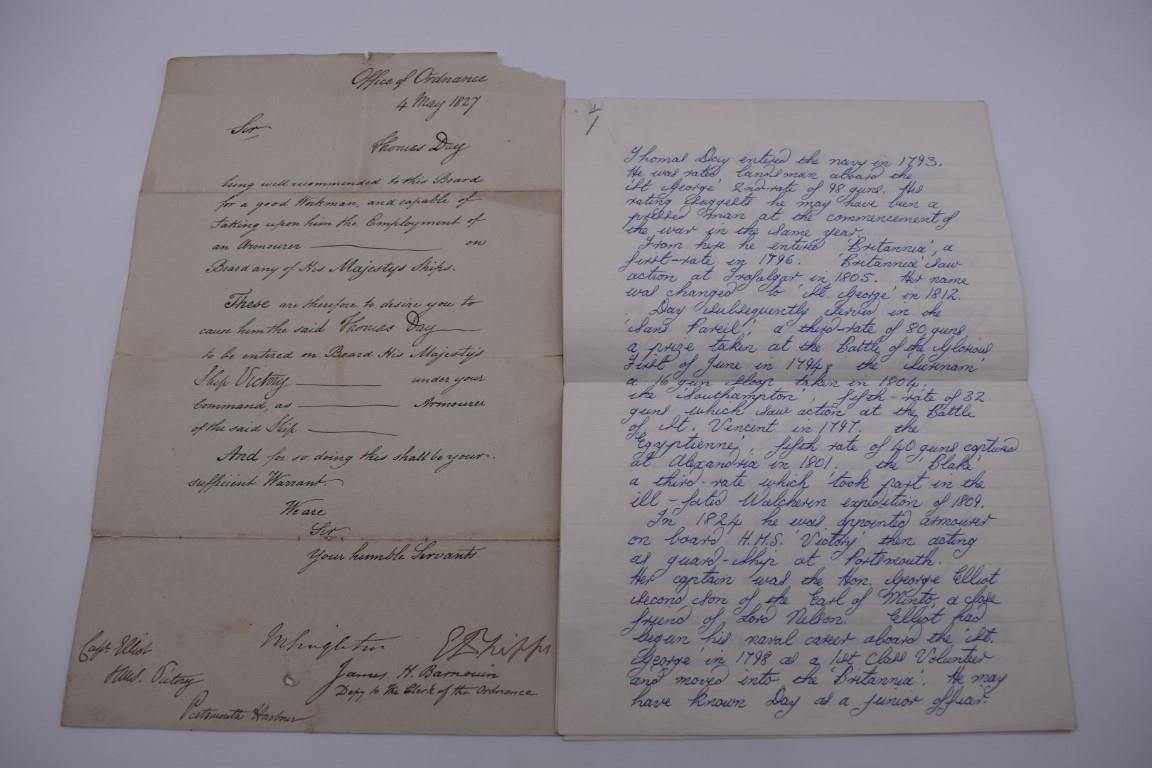 Office of Ordnance
4 May 1827
Sir
Thomas Day
being well recommended to this Board
for a good Workman, and capable of
taking upon him the Employment of
an Armourer on
Board any of His Majestys Ships.
These are therefore to desire you to
cause him the said Thomas Day
to be entered on Board His Majesty's
Ship Victory under your
Command, as Armourer
of the said Ship
And for so doing this shall be your
sufficient Warrant
We are
Sir
Your humble Servants
James H. Barnouin
Depy to the Clerk of the Ordnance
Capt Elliot
HMS. Victory
Portsmouth Harbour
1/1
Thomas Day entered the navy in 1793.
He was rated landsman aboard the
'St George' 2nd-rate of 98 guns. His
rating suggests he may have been a
pressed man at the commencement of
the war in the same year.
From here he entered 'Britannia', a
first-rate in 1796. 'Britannia' saw
action at Trafalgar in 1805. Her name
was changed to 'St. George' in 1812.
Day subsequently served in the
'Sans Pareil', a third-rate of 80 guns,
a prize taken at the Battle of the Glorious
First of June in 1794; the 'Surinam'
a 16 gun sloop taken in 1804.
the 'Southampton', fifth-rate of 32
guns which saw action at the Battle
of St. Vincent in 1797. the
'Egyptienne', fifth rate of 40 guns captured
at Alexandria in 1801. the 'Blake'
a third-rate which took part in the
ill-fated Walcheren expedition of 1809.
In 1824 he was appointed armourer
on board H.M.S. 'Victory' then acting
as guard-ship at Portsmouth.
Her captain was the Hon. George Elliot
second son of the Earl of Minto, a close
friend of Lord Nelson. Elliot had
begun his naval career aboard the 'St.
George' in 1798 as a 1st Class Volunteer
and moved into the 'Britannia'. He may
have known Day as a junior officer.